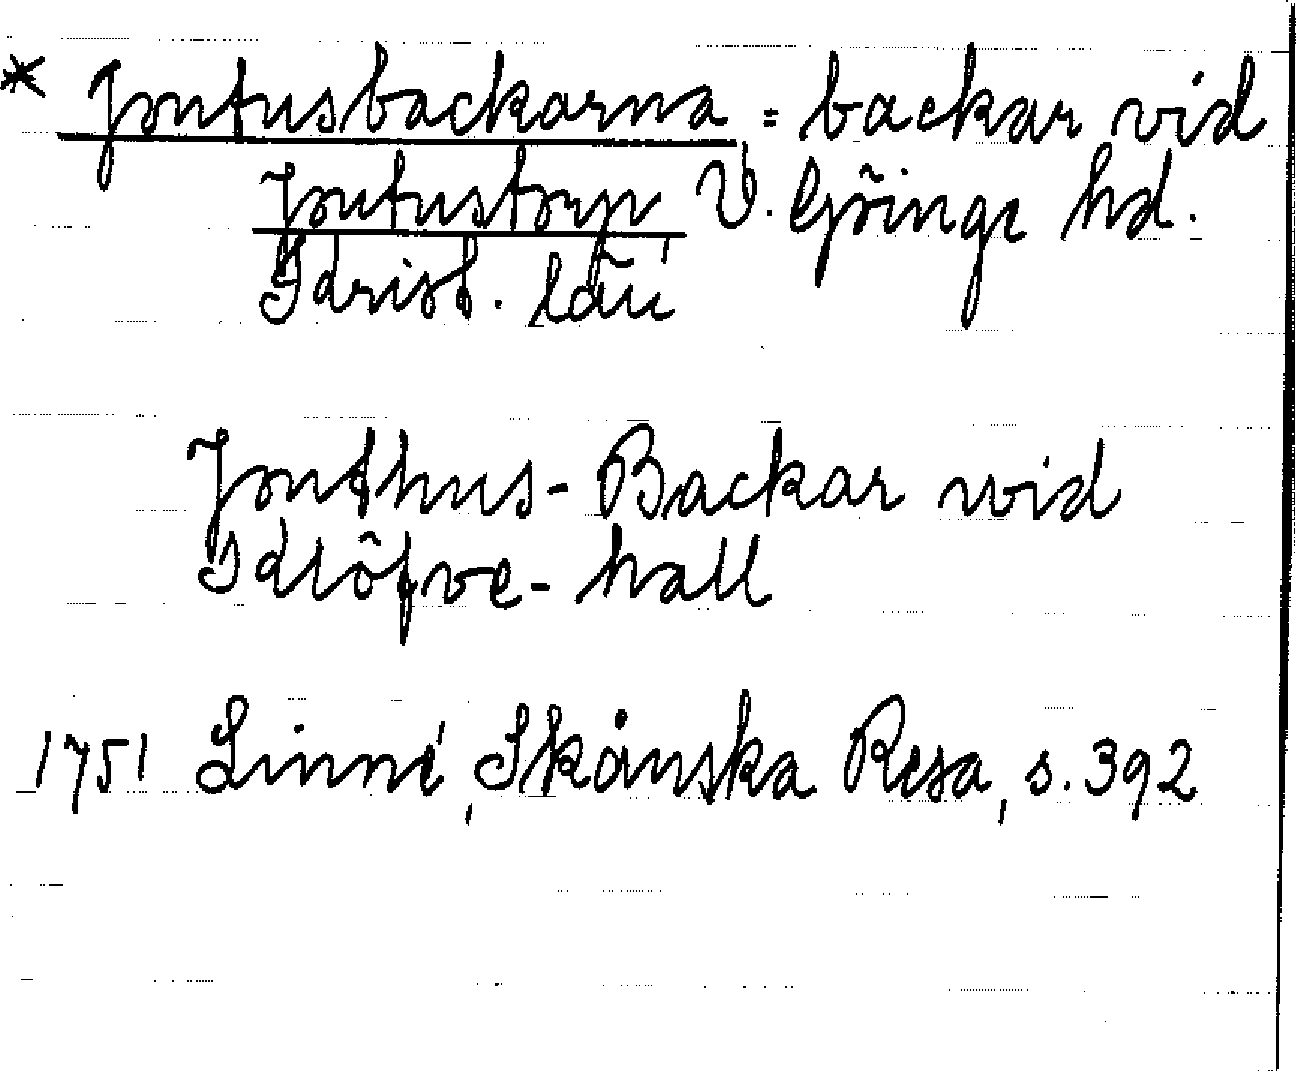 * Jontusbackarna = backar vid
Jontustorp V. Göinge hd.
Krist. län
Jonthus-Backar wid
Klöfve-hall
1751 Linné, Skånska Resa, s. 392